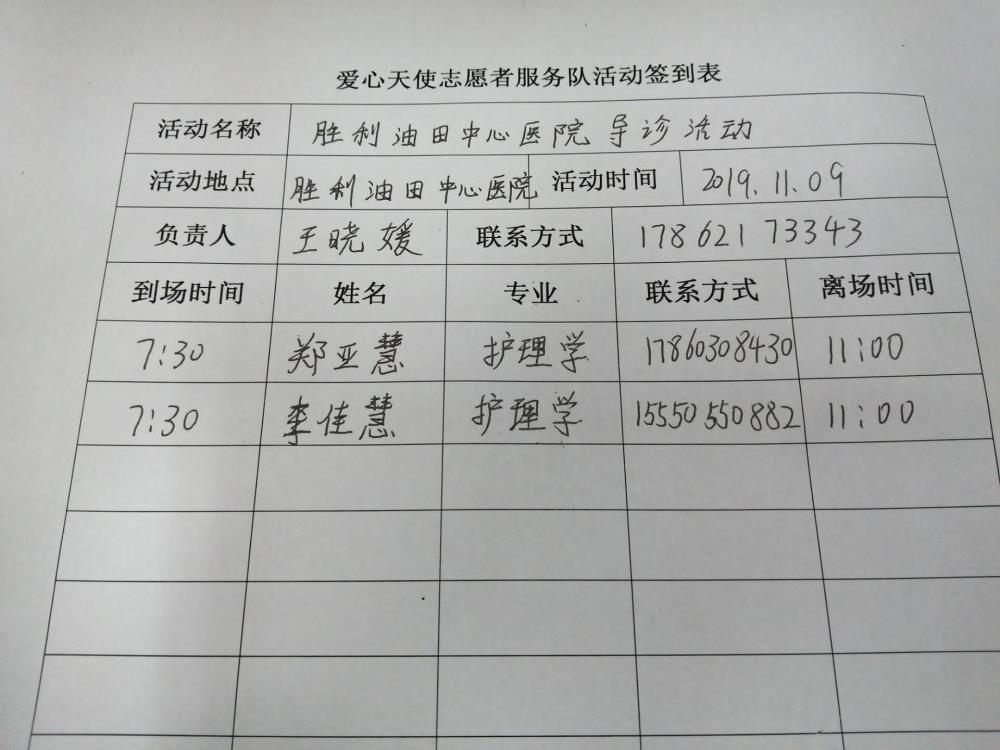 爱心天使志愿者服务队活动签到表
活动名称 胜利油田中心医院导诊活动
活动地点 胜利油田中心医院 活动时间 2019.11.09
负责人 王晓媛 联系方式 17862173343
到场时间 姓名 专业 联系方式 离场时间
7:30 郑亚慧 护理学 17860308430 11:00
7:30 李佳慧 护理学 15550550882 11:00